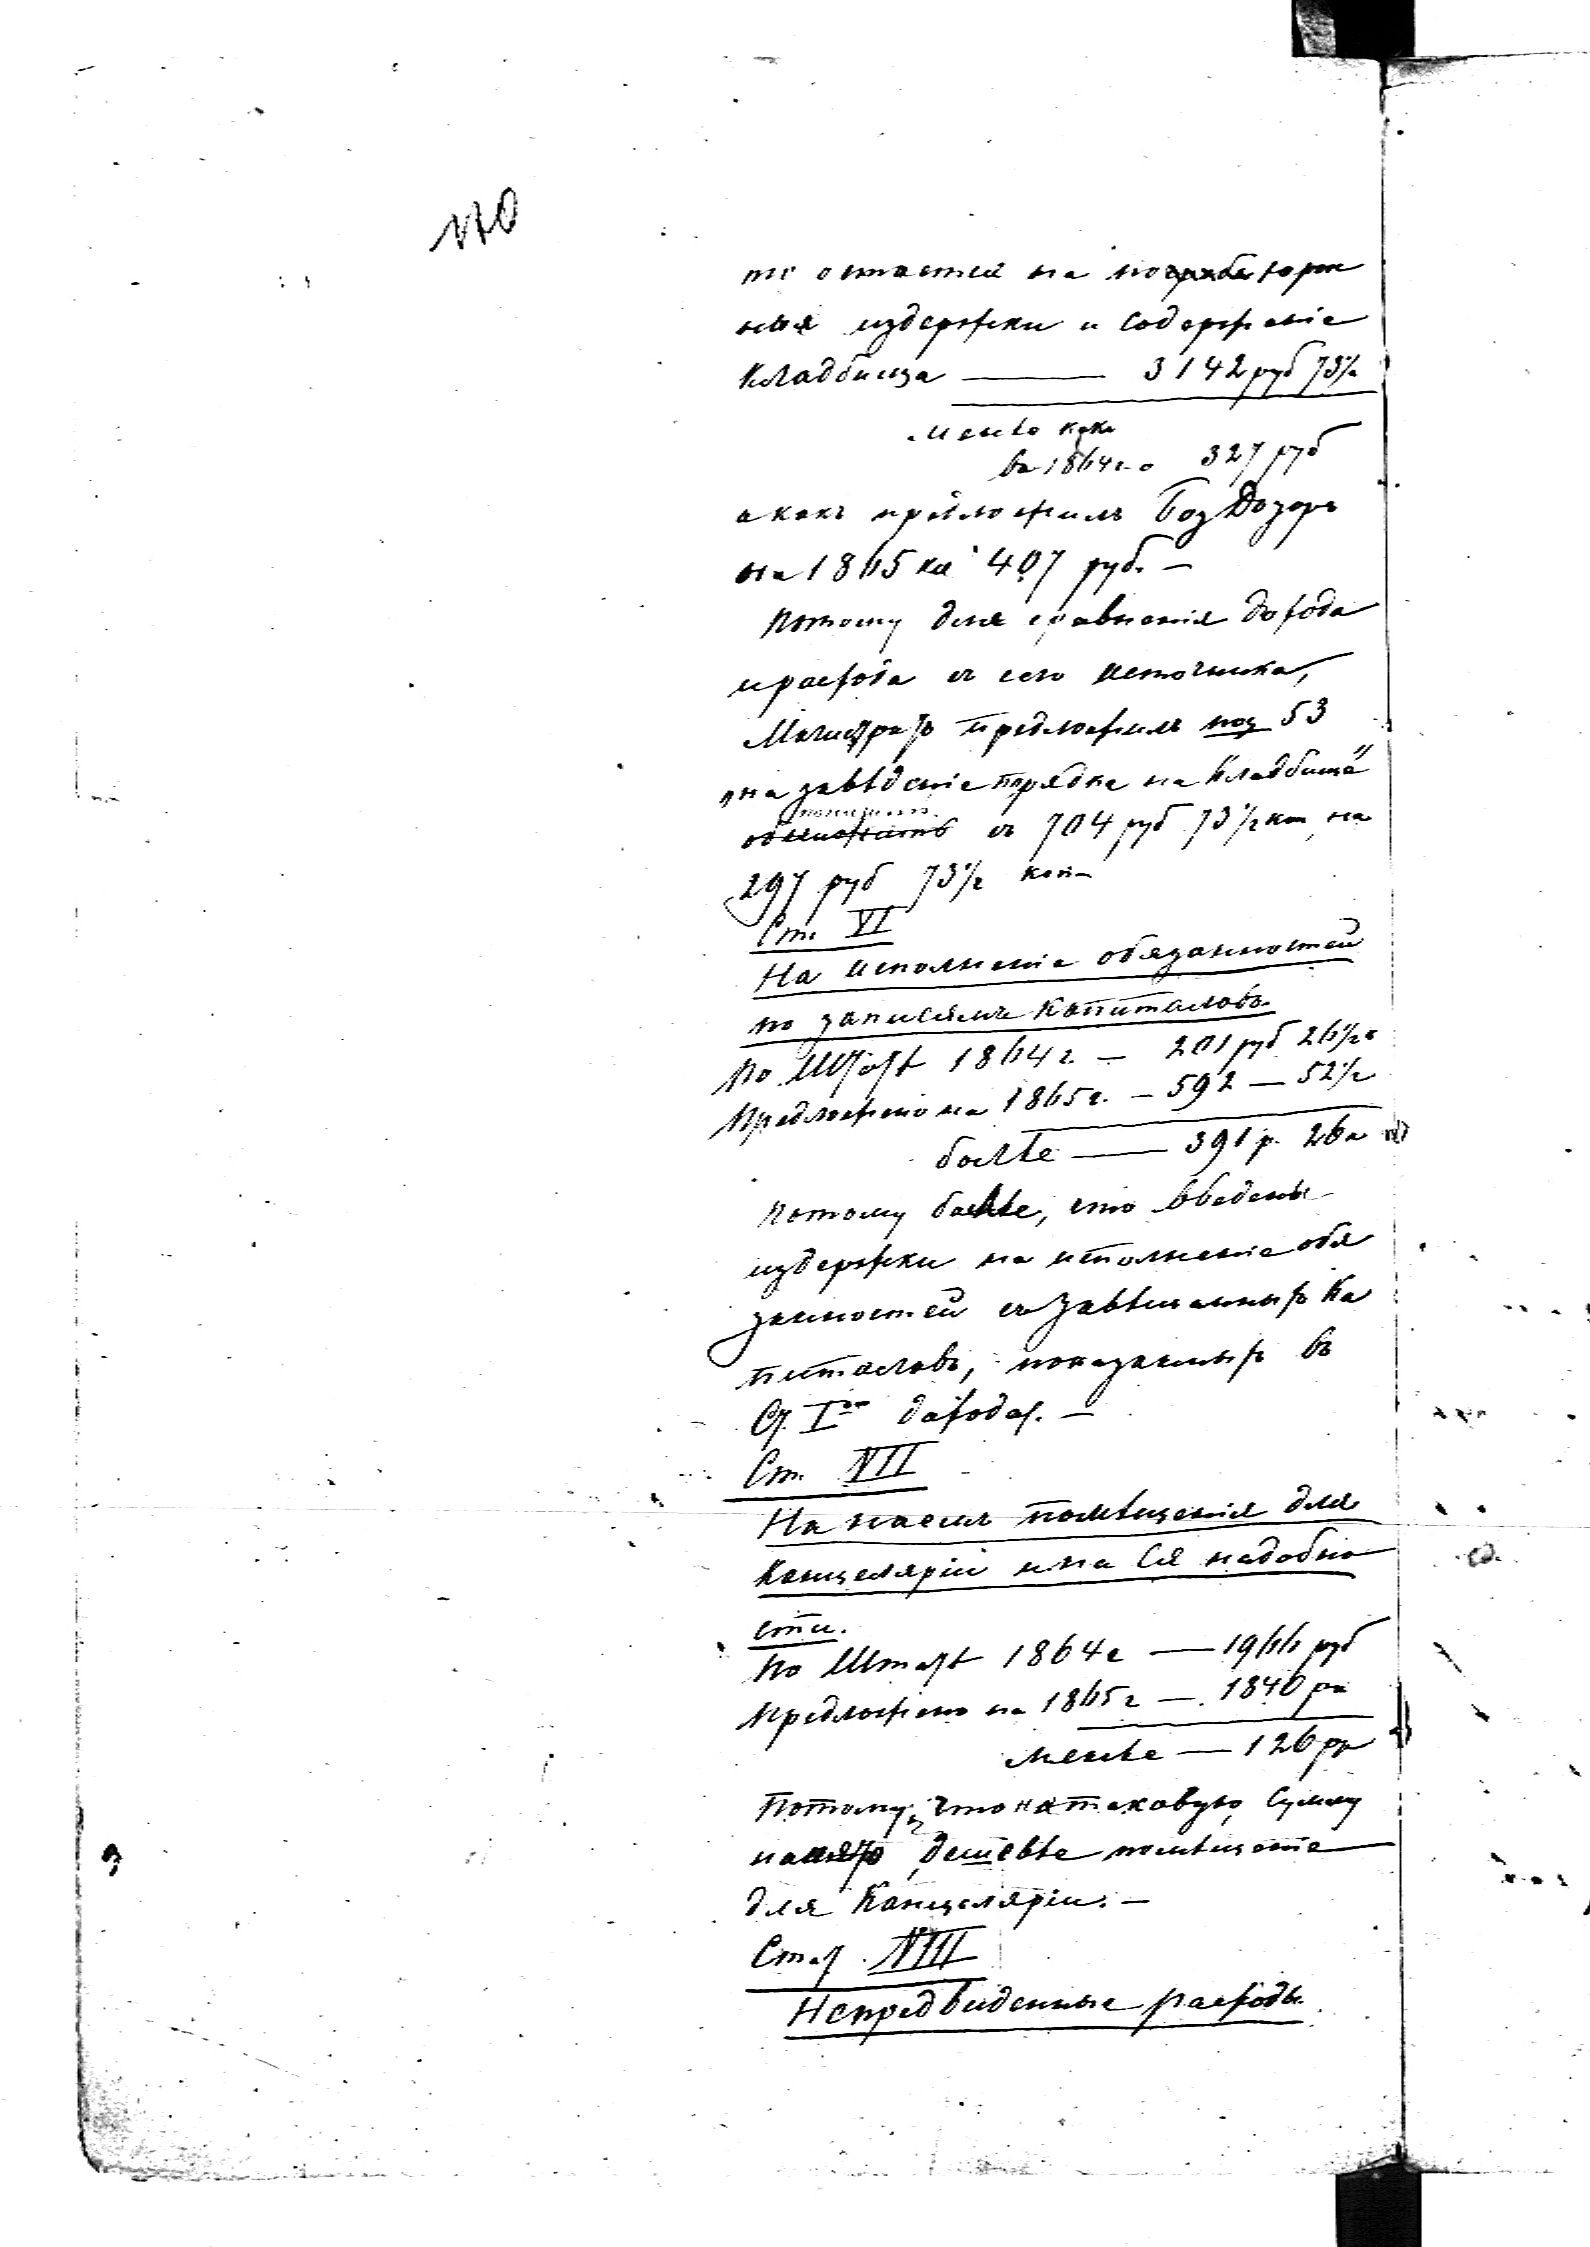 170
то остается на погребатель
ныя издержки и содержаніе
Кладбища — 3142 руб 73½
менѣе какъ
въ 1864 г. о 327 руб
а какъ предложилъ Боз Дозоръ
на 1865 на 407 руб. —
Потому для сравненія дохода
и расхода съ сего источника,
Магистратъ предложилъ поз 53
„на заведеніе порядка на Кладбищѣ"
съ 704 руб 73½ коп на
297 руб 73½ коп
Ст. VI
На исполненіе обязанностей
по записямъ Капиталовъ.
По Штату 1864 г. — 201 руб 26½ к
Предложено на 1865 г. — 592 — 52½
болѣе — 391 р. 26 к
Потому болѣе, что введены
издержки на исполненіе обя
занностей съ завѣщанныхъ Ка
питаловъ, показанныхъ въ
Ст. I доходах. —
Ст. VII
На наемъ помѣщенія для
Канцеляріи и на Ея надобно
сти.
По Штату 1864 г — 1966 руб
Предложено на 1865 г — 1840 ру
менѣе — 126 ру
Потому, что на таковую сумму
нанято дешевле помѣщеніе
для Канцеляріи. —
Стат. VIII
Непредвиденные расходы.